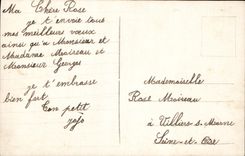 Ma Chère Rose
je t'envoie tous
mes meilleurs vœux
ainsi qu'a Monsieur et
Madame Moireau et
Monsieur Georges
je t'embrasse
bien fort
Ton petit
jojo
Mademoiselle
Rose Moireau
à Villiers s. Marne
Seine-et-Oise